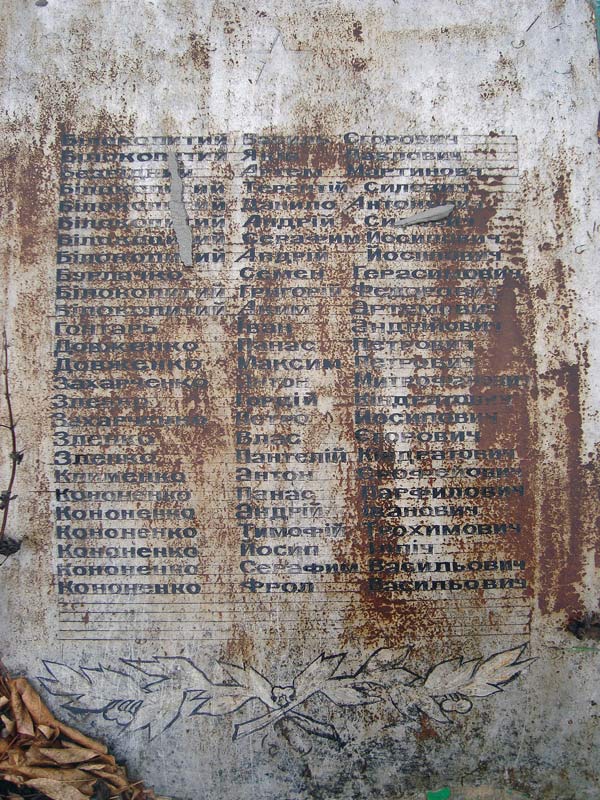 Білокопитий Василь Єгорович
Білокопитий Яків Павлович
Безвідний Артем Мартинович
Білокопитий Терентій Силович
Білокопитий Данило Антонович
Білокопитий Андрій
Білокопитий Серафим Йосипович
Білокопитий Андрій Йосипович
Бурлачко Семен Герасимович
Білокопитий Григорій Федорович
Білокопитий Яким Артемович
Гонтарь Іван Андрійович
Довженко Панас Петрович
Довженко Максим Петрович
Захарченко Антон Митрофанович
Зленко Гордій Кіндратович
Захарченко Петро Йосипович
Зленко Влас Єгорович
Зленко Пантелій Кіндратович
Клименко Антон
Кононенко Панас Парфилович
Кононенко Андрій Іванович
Кононенко Тимофій Трохимович
Кононенко Йосип Ілліч
Кононенко Серафим Васильович
Кононенко Фрол Васильович